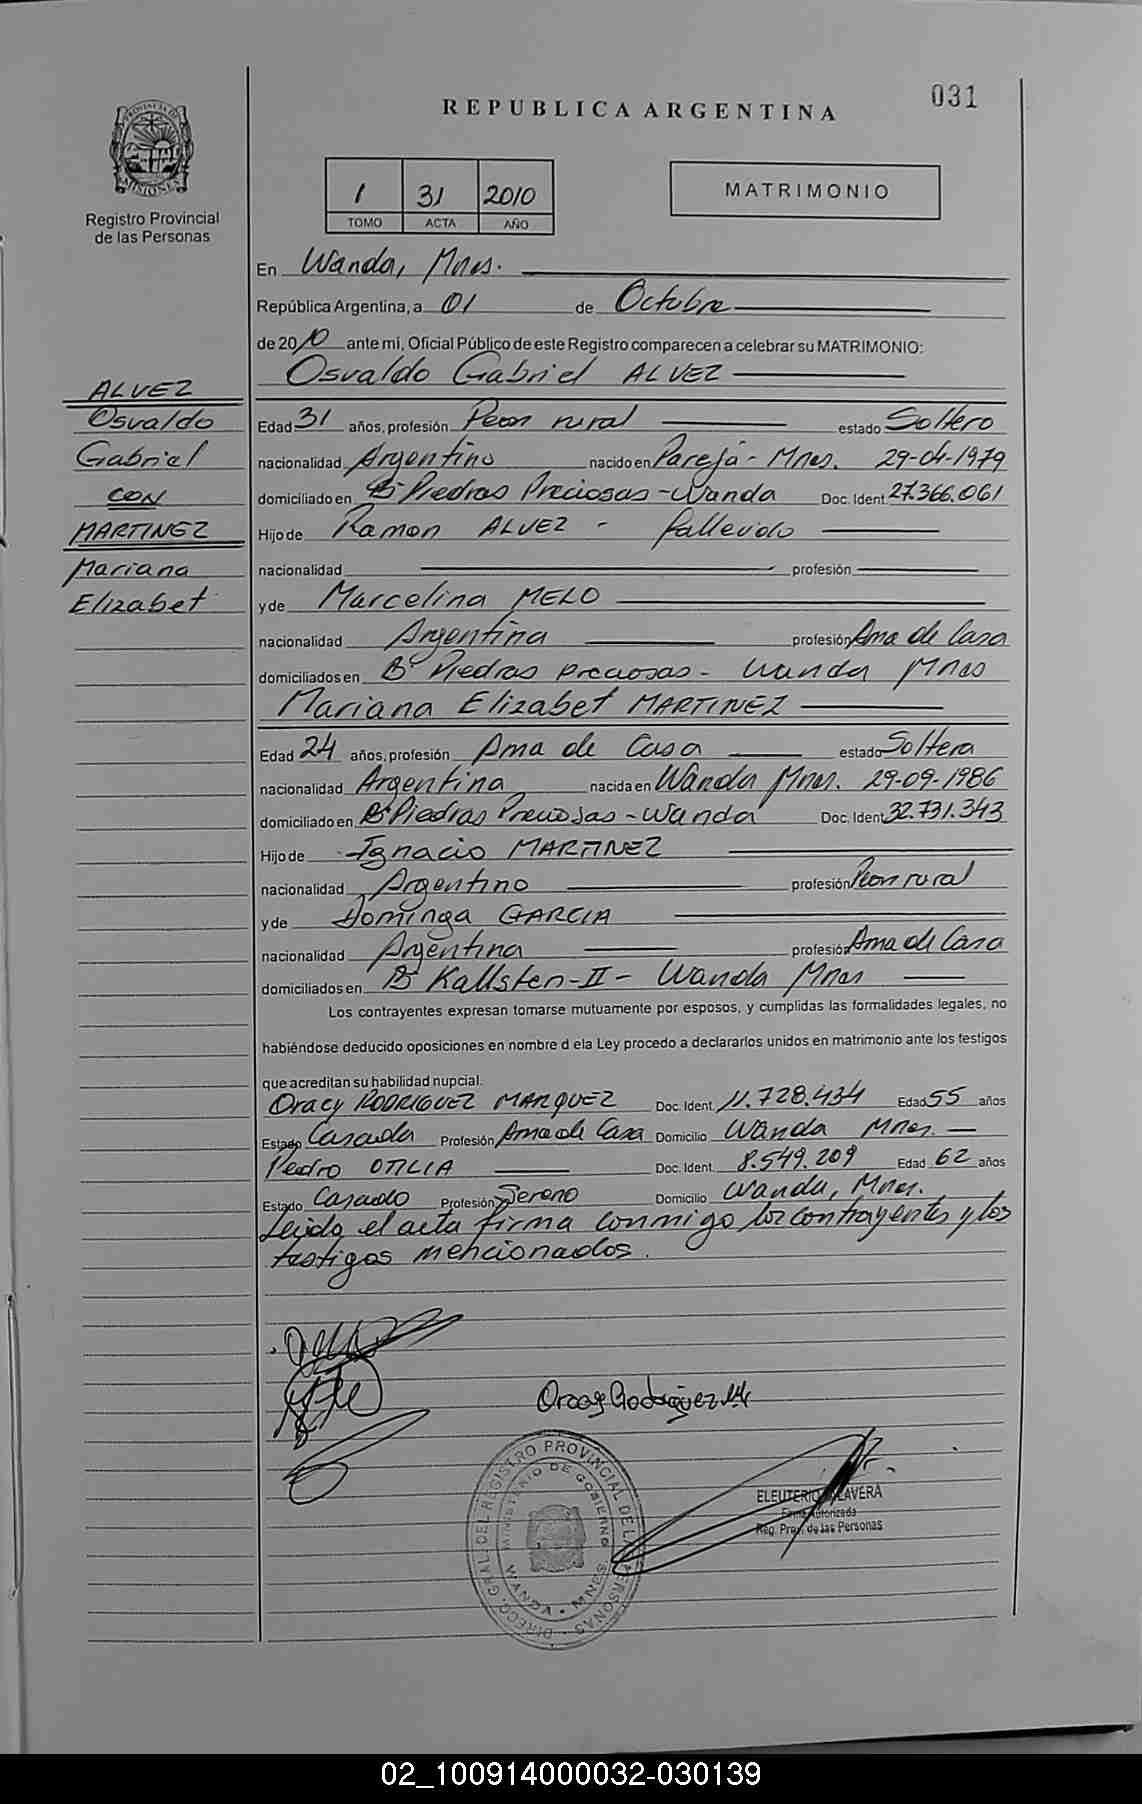 031
REPUBLICA ARGENTINA
PROVINCIA DE MISIONES
Registro Provincial
de las Personas
1 31 2010
TOMO ACTA AÑO
MATRIMONIO
En Wanda, Mnes.
República Argentina, a 01 de Octubre
de 2010 ante mi, Oficial Público de este Registro comparecen a celebrar su MATRIMONIO:
Osvaldo Gabriel ALVEZ
ALVEZ
Osvaldo
Gabriel
CON
MARTINEZ
Mariana
Elizabet
Edad 31 años, profesión Peon rural estado Soltero
nacionalidad Argentino nacido en Pareja - Mnes. 29-04-1979
domiciliado en Bº Piedras Preciosas - Wanda Doc. Ident. 27.366.061
Hijo de Ramon ALVEZ - fallecido
nacionalidad profesión
y de Marcelina MELO
nacionalidad Argentina profesión Ama de Casa
domiciliados en Bº Piedras preciosas - Wanda Mnes
Mariana Elizabet MARTINEZ
Edad 24 años, profesión Ama de Casa estado Soltera
nacionalidad Argentina nacida en Wanda Mnes. 29-09-1986
domiciliado en Bº Piedras Preciosas - Wanda Doc. Ident. 32.731.343
Hijo de Ignacio MARTINEZ
nacionalidad Argentino profesión Peon rural
y de Dominga GARCIA
nacionalidad Argentina profesión Ama de Casa
domiciliados en Bº Kallsten - II - Wanda Mnes
Los contrayentes expresan tomarse mutuamente por esposos, y cumplidas las formalidades legales, no
habiéndose deducido oposiciones en nombre d ela Ley procedo a declararlos unidos en matrimonio ante los testigos
que acreditan su habilidad nupcial.
Oracy RODRIGUEZ MARQUEZ Doc. Ident. 11.728.434 Edad 55 años
Estado Casada Profesión Ama de Casa Domicilio Wanda Mnes.
Pedro OTILIA Doc. Ident. 8.549.209 Edad 62 años
Estado Casado Profesión Sereno Domicilio Wanda, Mnes.
Leida el acta firma conmigo los contrayentes y los
testigos mencionados.
Oracy Rodriguez M
DIRECC. GRAL. DEL REGISTRO PROVINCIAL DE LAS PERSONAS
MINISTERIO DE GOBIERNO
WANDA - MNES
ELEUTERIO TALAVERA
Firma Autorizada
Reg. Prov. de las Personas
02_100914000032-030139